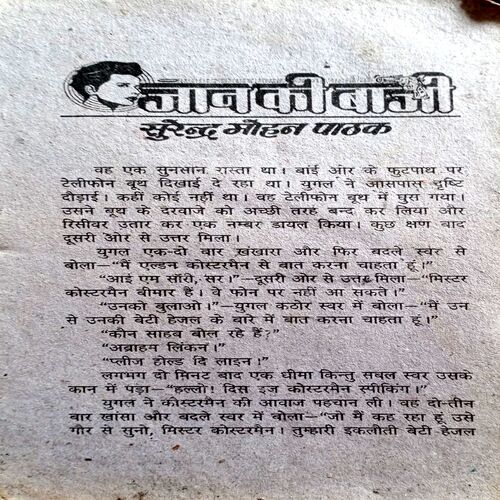 जान की बाजी
सुरेन्द्र मोहन पाठक
वह एक सुनसान रास्ता था। बांई ओर के फुटपाथ पर
टेलीफोन बूथ दिखाई दे रहा था। युगल ने आसपास दृष्टि
दौड़ाई। कहीं कोई नहीं था। वह टेलीफोन बूथ में घुस गया।
उसने बूथ के दरवाजे को अच्छी तरह बन्द कर लिया और
रिसीवर उतार कर एक नम्बर डायल किया। कुछ क्षण बाद
दूसरी ओर से उत्तर मिला।
युगल एक-दो बार खंखारा और फिर बदले स्वर से
बोला—“मैं एल्डन कोस्टरमैन से बात करना चाहता हूं।”
“आई एम सॉरी, सर।”—दूसरी ओर से उत्तर मिला—“मिस्टर
कोस्टरमैन बीमार हैं। वे फोन पर नहीं आ सकते।”
“उनको बुलाओ।”—युगल कठोर स्वर में बोला—“मैं उन
से उनकी बेटी हेजल के बारे में बात करना चाहता हूं।”
“कौन साहब बोल रहे हैं?”
“अब्राहम लिंकन।”
“प्लीज होल्ड दि लाइन।”
लगभग दो मिनट बाद एक धीमा किन्तु सबल स्वर उसके
कान में पड़ा—“हल्लो! दिस इज कोस्टरमैन स्पीकिंग।”
युगल ने कोस्टरमैन की आवाज पहचान ली। वह दो-तीन
बार खांसा और बदले स्वर में बोला—“जो मैं कह रहा हूं उसे
गौर से सुनो, मिस्टर कोस्टरमैन। तुम्हारी इकलौती बेटी हेजल